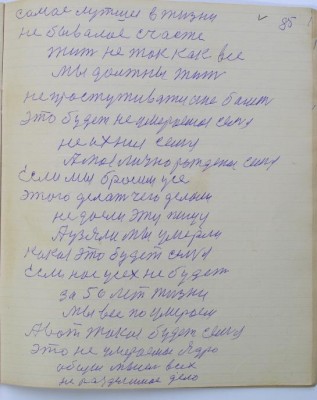 85
самое лутшие в жизни
не бывалое счасте
жит не так как все
мы должны жит
не простуживатися болет
это будет не умераемая сила
не ихняя сила
А моя лично рожденая сила
Если мы бросим усе
этого делат чего делаем
не доели эту пищу
А узяли мы умерли
какая это будет сила
Если нас усех не будет
за 50 лет жизни
мы все по умераем
А вот такая будет сила
это не умераемая ядро
общем мысля всех
не раздилимае дело